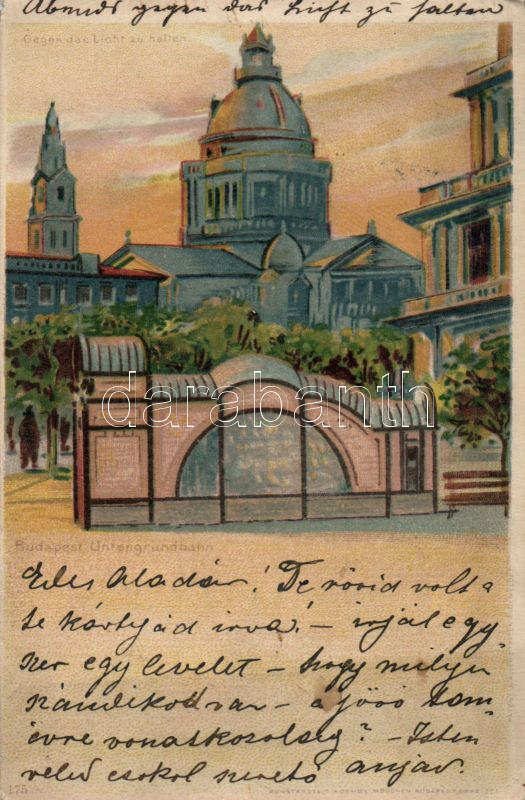 Abends gegen das Licht zu halten
Gegen das Licht zu halten.
darabanth
Budapest Untergrundbahn
Edes Aladár! De rövid volt a
te kártyád irva! – irjál egy
szer egy levelet – hogy milyen
szándékod van – a jövö tan=
évre vonatkozolag? – Isten
veled csokol szeretö anyád.
175
KUNSTANSTALT KOSMOS MÜNCHEN BUDAPEST